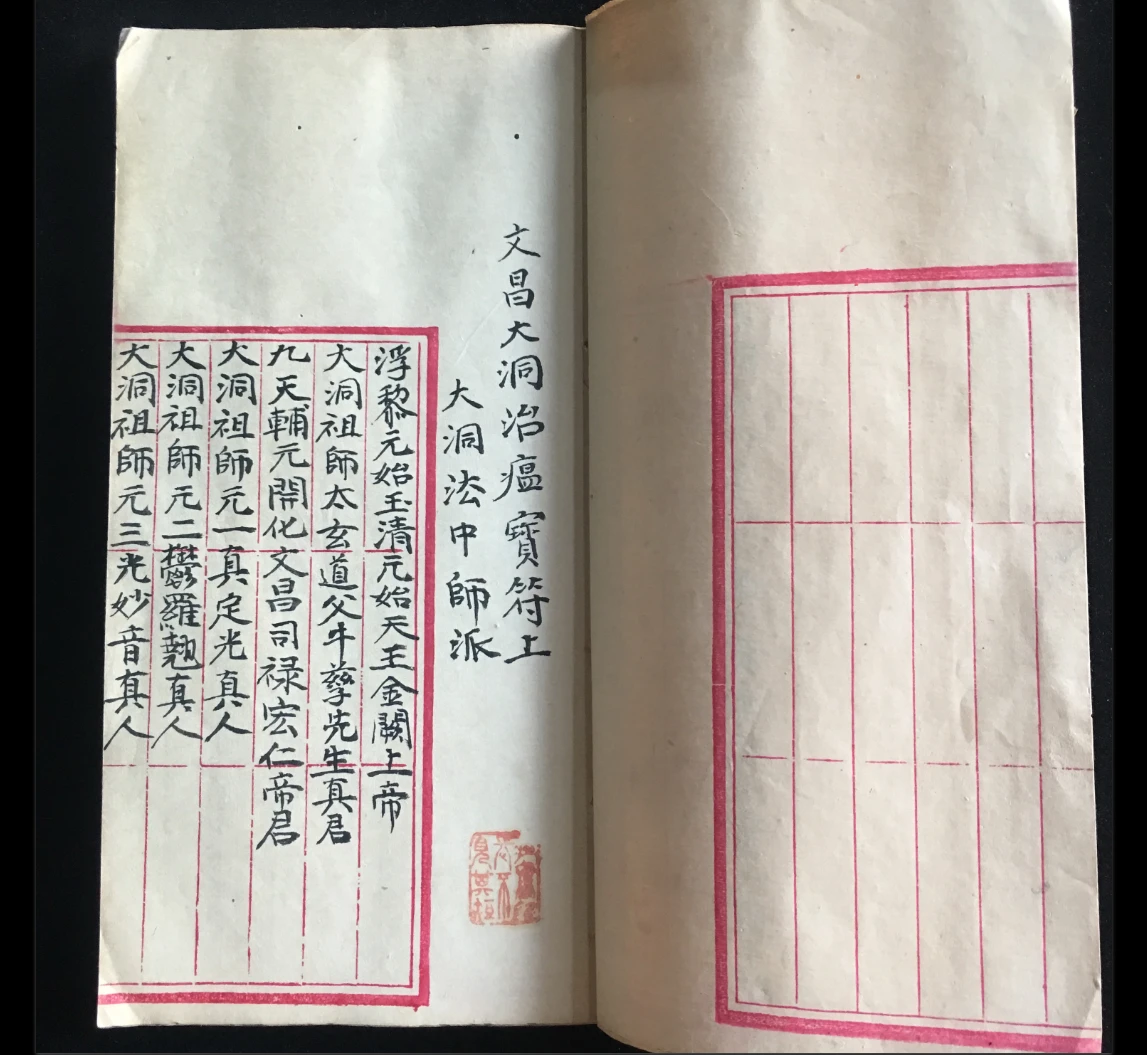 文昌大洞治瘟寶符上
大洞法中師派
浮黎元始玉清元始天王金闕上帝
大洞祖師太玄道父牛孳先生真君
九天輔元開化文昌司禄宏仁帝君
大洞祖師元一真定光真人
大洞祖師元二鬱羅翹真人
大洞祖師元三光妙音真人